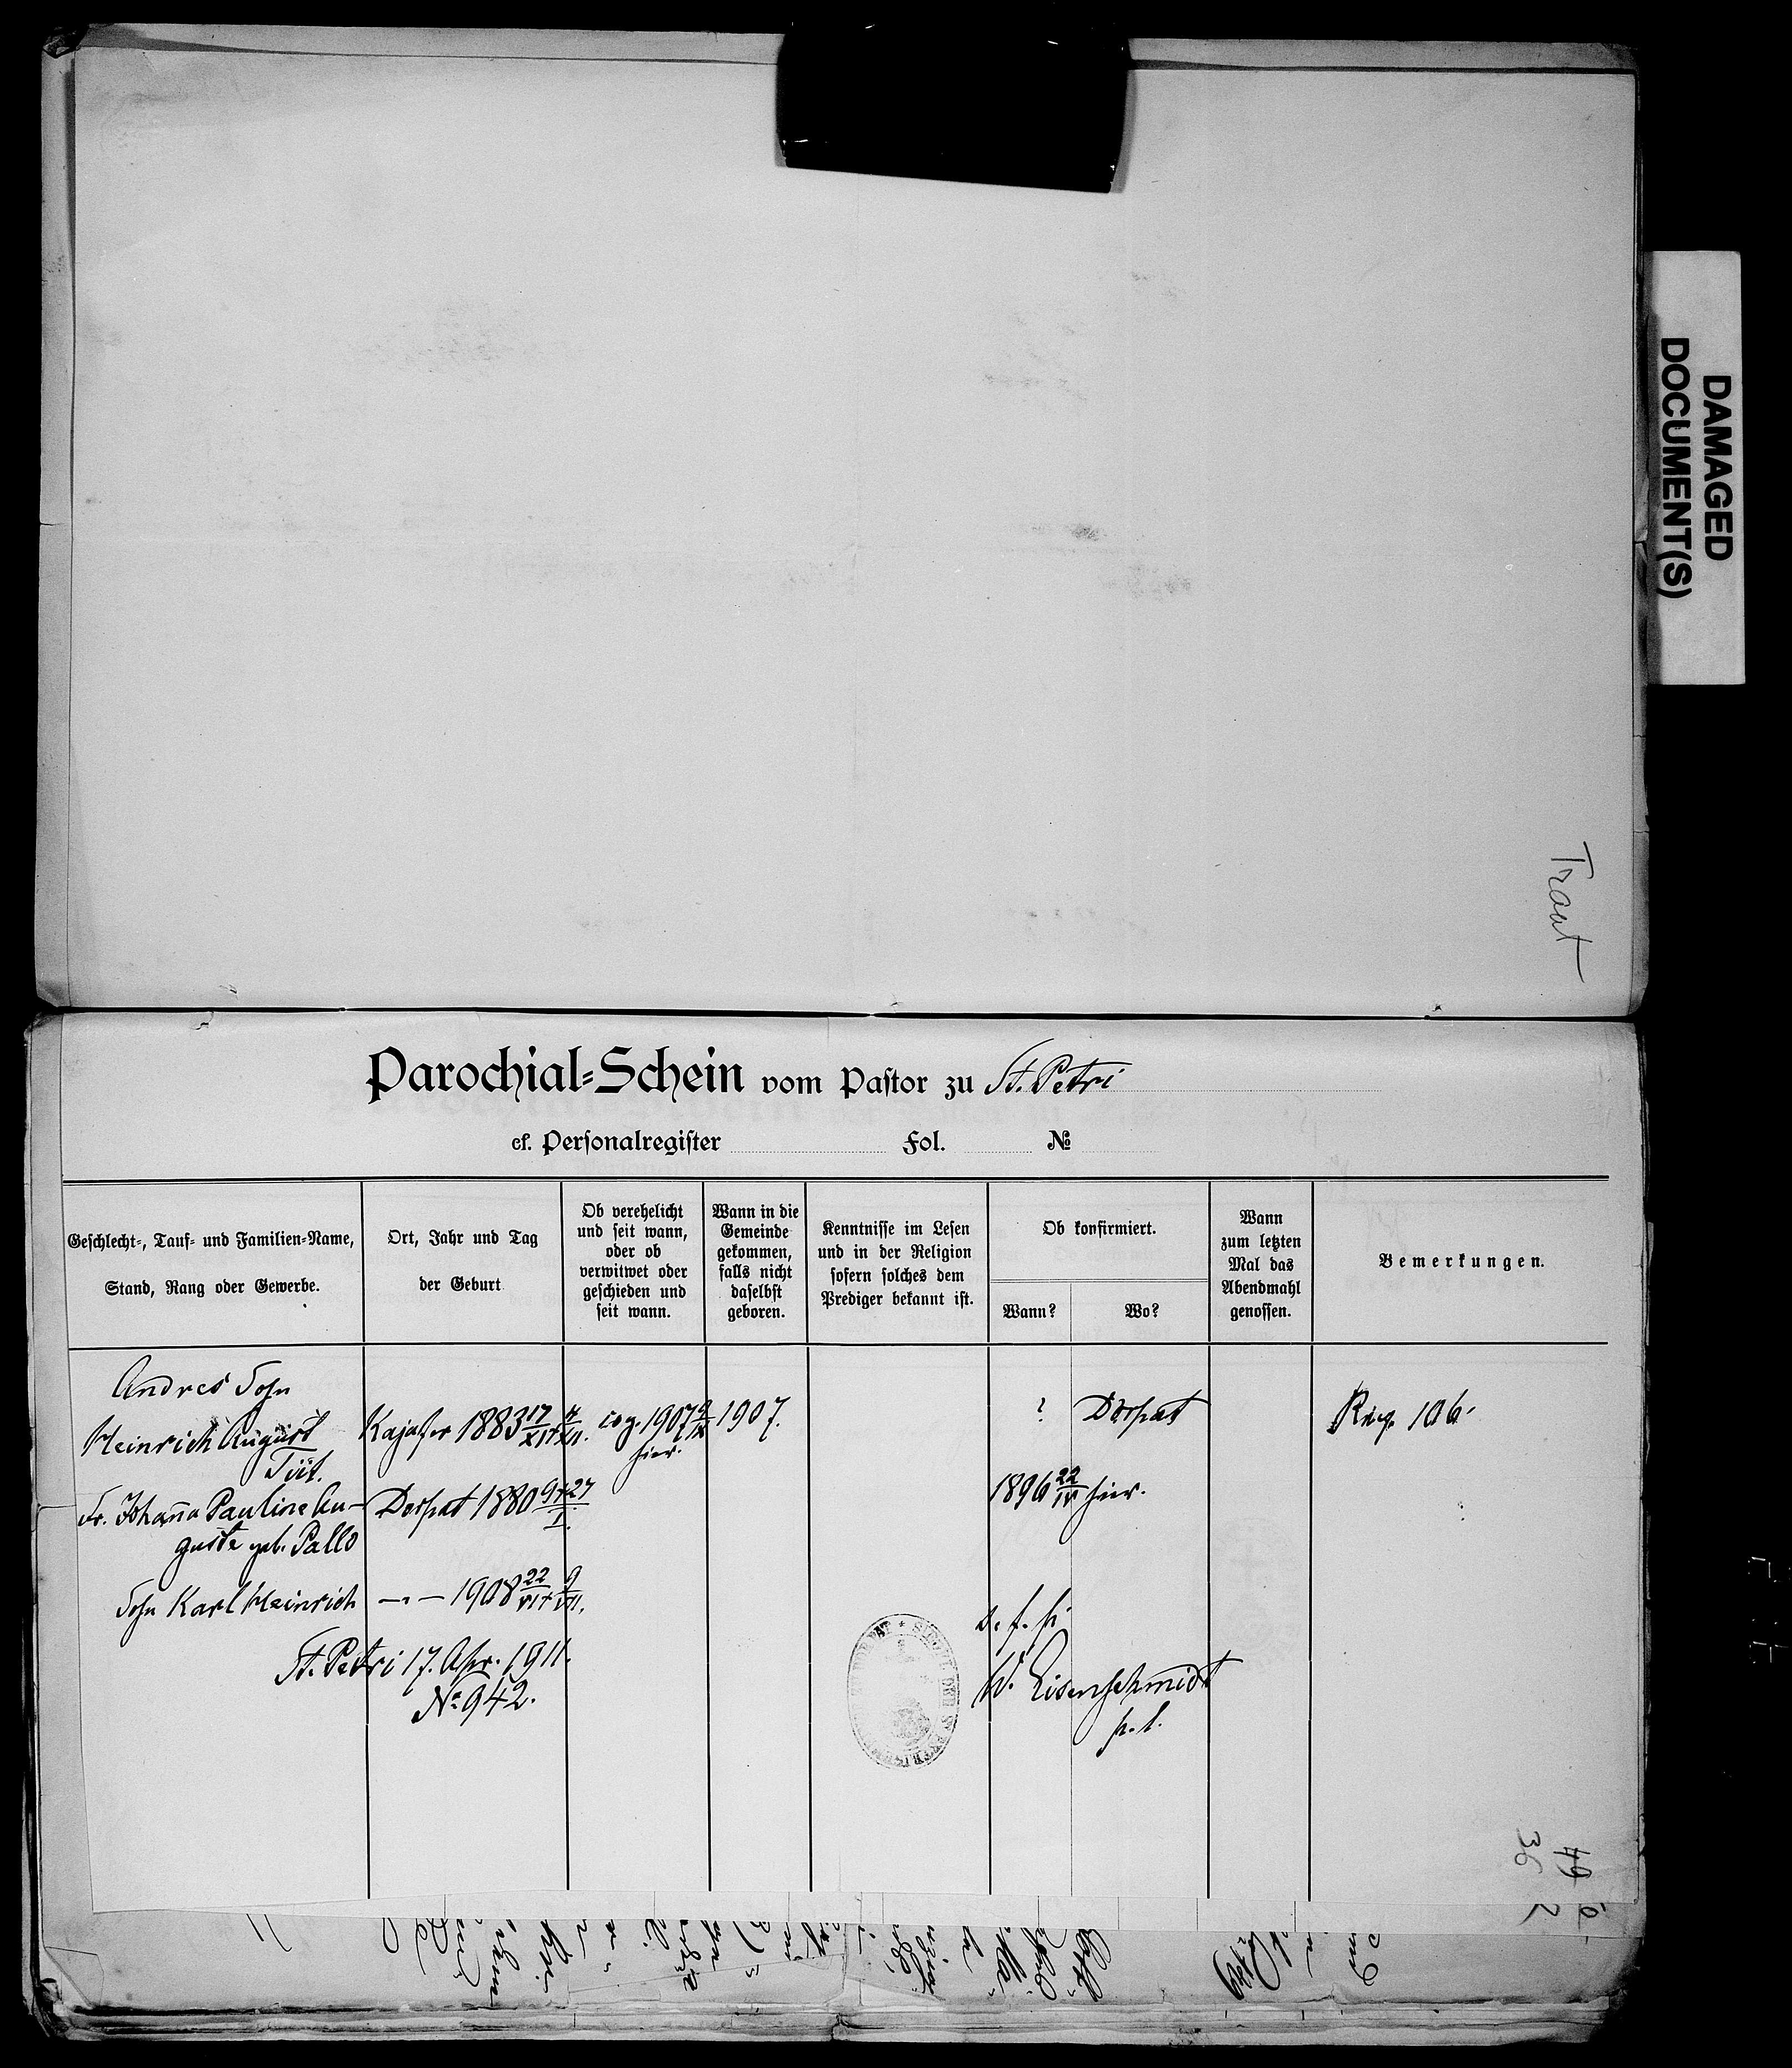 DAMAGED
DOCUMENT(S)
Traut
Parochial-Schein vom Pastor zu St. Petri
cf. Personalregister Fol. №
Geschlecht-, Tauf- und Familien-Name,
Stand, Rang oder Gewerbe.
Ort, Jahr und Tag
der Geburt
Ob verehelicht
und seit wann,
oder ob
verwitwet oder
geschieden und
seit wann.
Wann in die
Gemeinde
gekommen,
falls nicht
daselbst
geboren.
Kenntnisse im Lesen
und in der Religion
sofern solches dem
Prediger bekannt ist.
Ob konfirmiert.
Wann?
Wo?
Wann
zum letzten
Mal das
Abendmahl
genossen.
Bemerkungen.
Andres Sohn
Heinrich August
Tiit.
Kajafer 1883 17/XI + 4/XII.
cog. 1907 9/IX
hier.
1907.
? Dorpat
106.
Fr. Johanna Pauline Au-
guste geb. Pallo
Dorpat 1880 9+27/I.
1896 22/IV hier.
Sohn Karl Heinrich
—"— 1908 22/VI + 9/VII.
St. Petri 17. Apr. 1911.
№ 942.
W. Eisenschmidt
p. l.
49
36